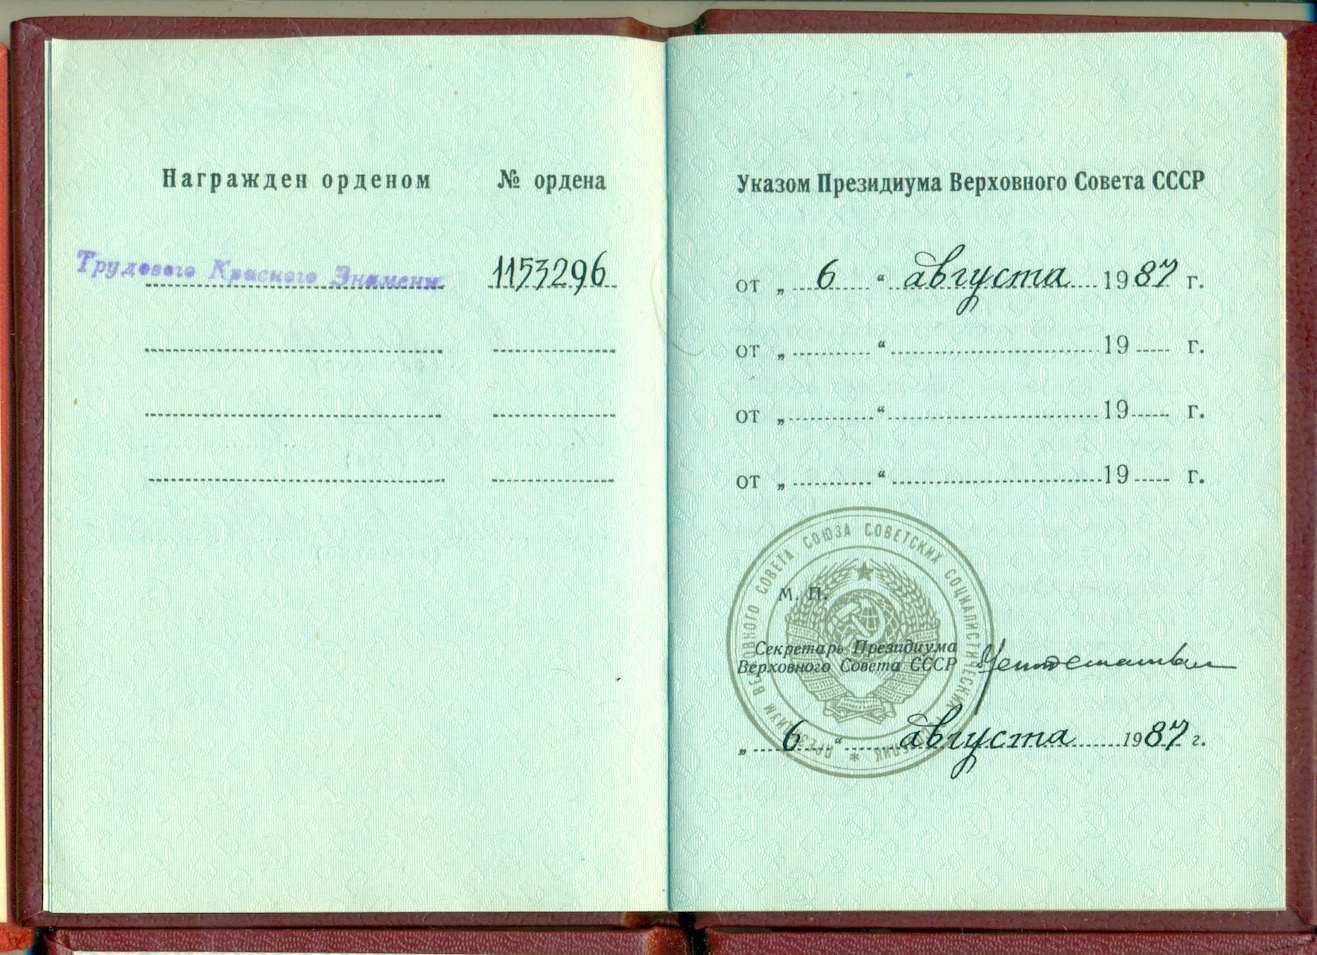 Награжден орденом № ордена
Трудового Красного Знамени 1153296
Указом Президиума Верховного Совета СССР
от „ 6 “ августа 1987 г.
от „ “ 19 г.
от „ “ 19 г.
от „ “ 19 г.
ПРЕЗИДИУМ ВЕРХОВНОГО СОВЕТА СОЮЗА СОВЕТСКИХ СОЦИАЛИСТИЧЕСКИХ РЕСПУБЛИК
М. П.
Секретарь Президиума
Верховного Совета СССР
„ 6 “ августа 1987 г.